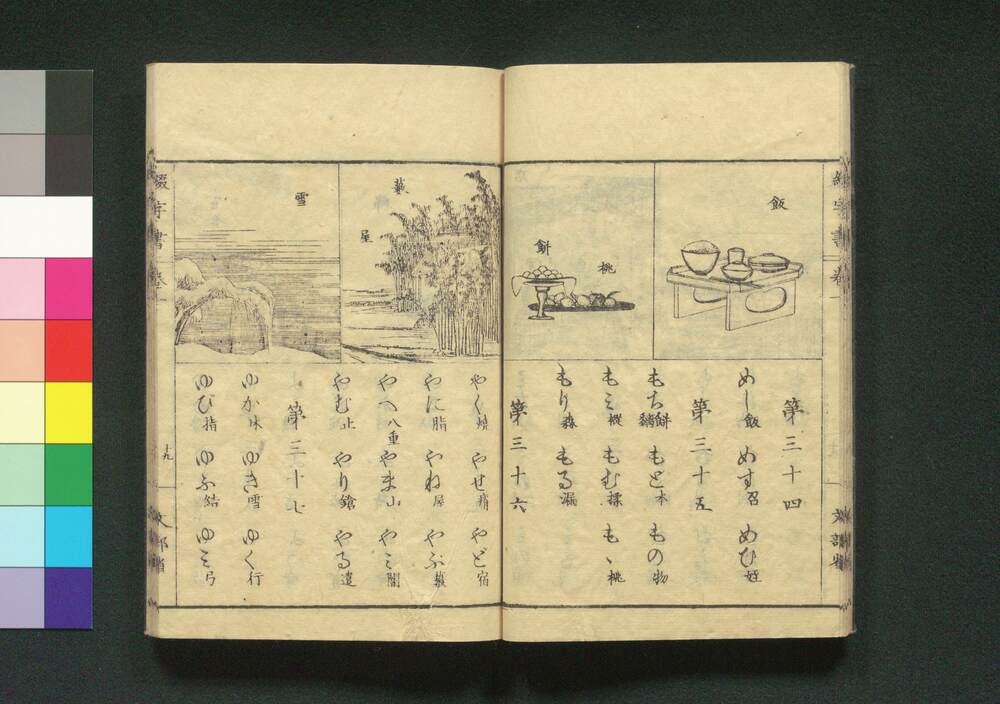 飯
餅
桃
第三十四
めし飯 めす召 めひ姪
第三十五
もち餅黐 もと本 もの物
もミ樅 もむ揉 もゝ桃
もり森 もる漏
第三十六
藪
屋
雪
やく焼 やせ痩 やど宿
やに脂 やね屋 やぶ藪
やへ八重 やま山 やミ闇
やむ止 やり鎗 やる遣
第三十七
ゆか床 ゆき雪 ゆく行
ゆび指 ゆふ結 ゆミ弓
綴字書 巻一
十九
文部省